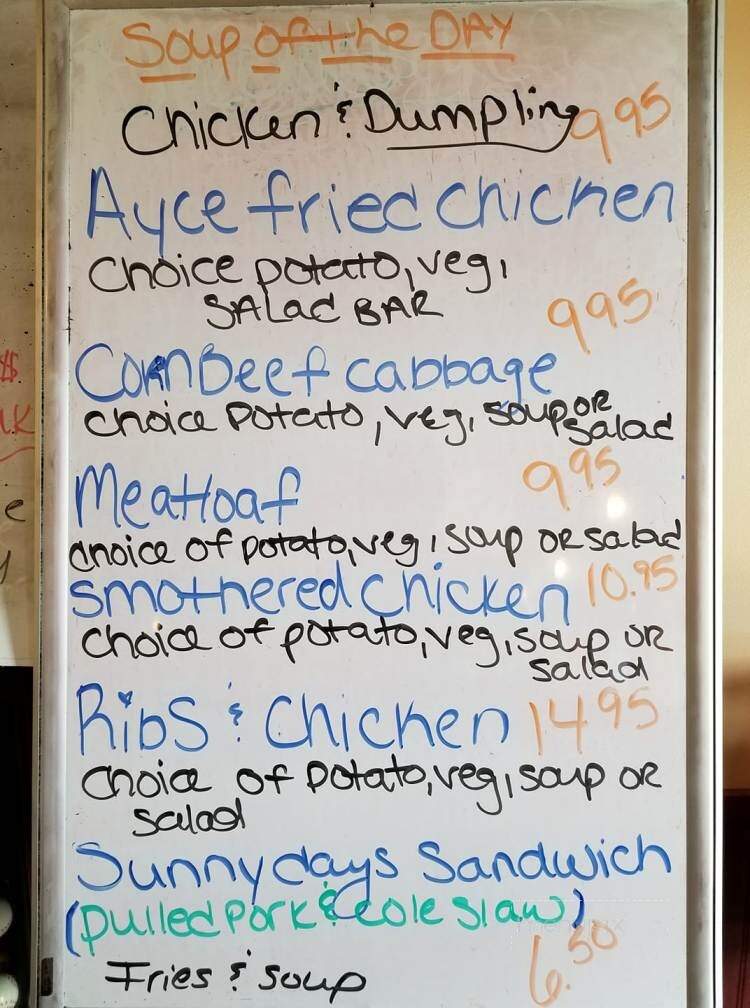 Soup of the DAY
Chicken & Dumpling 9 95
Ayce fried chicken
Choice potato, veg,
SALad BAR 9 95
CornBeef cabbage
choice Potato, veg, soup OR
salad
Meatloaf 9 95
choice of potato, veg, soup OR salad
smothered chicken 10.95
choice of potato, veg, soup OR
salad
Ribs & Chicken 14 95
choice of Potato, veg, soup OR
salad
Sunnydays Sandwich
(pulled Pork & cole slaw)
Fries & soup 6.50